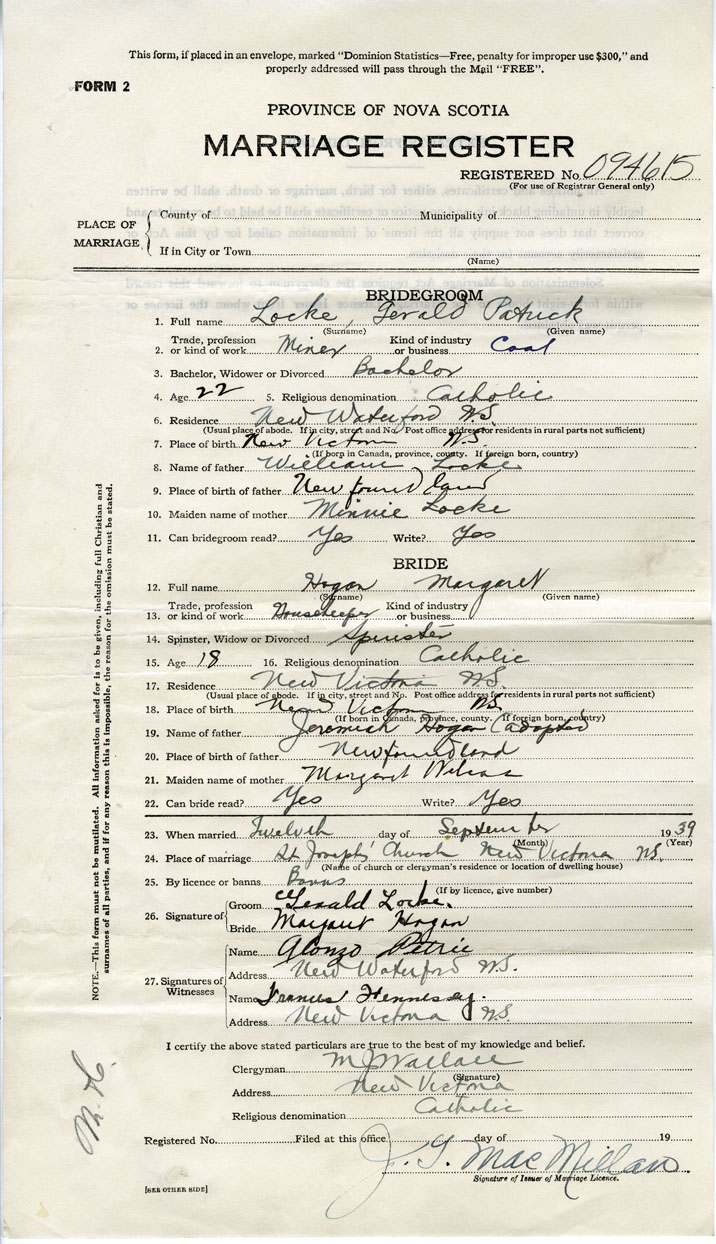 This form, if placed in an envelope, marked "Dominion Statistics—Free, penalty for improper use $300," and
properly addressed will pass through the Mail "FREE".
FORM 2
PROVINCE OF NOVA SCOTIA
MARRIAGE REGISTER
REGISTERED No. 094615
(For use of Registrar General only)
PLACE OF MARRIAGE
County of Municipality of
If in City or Town
(Name)
BRIDEGROOM
1. Full name Locke, Gerald Patrick
(Surname) (Given name)
2. Trade, profession or kind of work Miner Kind of industry or business Coal
3. Bachelor, Widower or Divorced Bachelor
4. Age 22 5. Religious denomination Catholic
6. Residence New Waterford N.S.
(Usual place of abode. If in city, street and No. Post office address for residents in rural parts not sufficient)
7. Place of birth New Victoria N.S.
(If born in Canada, province, county. If foreign born, country)
8. Name of father William Locke
9. Place of birth of father Newfoundland
10. Maiden name of mother Minnie Locke
11. Can bridegroom read? Yes Write? Yes
BRIDE
12. Full name Hogan Margaret
(Surname) (Given name)
13. Trade, profession or kind of work Housekeeper Kind of industry or business
14. Spinster, Widow or Divorced Spinster
15. Age 18 16. Religious denomination Catholic
17. Residence New Victoria N.S.
(Usual place of abode. If in city, street and No. Post office address for residents in rural parts not sufficient)
18. Place of birth New Victoria N.S.
(If born in Canada, province, county. If foreign born, country)
19. Name of father Jeremiah Hogan (adopted
20. Place of birth of father Newfoundland
21. Maiden name of mother Margaret
22. Can bride read? Yes Write? Yes
23. When married Twelvth day of September 1939
(Month) (Year)
24. Place of marriage St Joseph's Church New Victoria N.S.
(Name of church or clergyman's residence or location of dwelling house)
25. By licence or banns Banns
(If by licence, give number)
26. Signature of
Groom Gerald Locke.
Bride Margaret Hogan
27. Signatures of Witnesses
Name Alonzo Petrie
Address New Waterford N.S.
Name Francis Hennessey.
Address New Victoria N.S.
I certify the above stated particulars are true to the best of my knowledge and belief.
Clergyman M J Wallace
(Signature)
Address New Victoria
Religious denomination Catholic
Registered No. Filed at this office day of 19
J. G. MacMillan
Signature of Issuer of Marriage Licence.
[SEE OTHER SIDE]
NOTE.—This form must not be mutilated. All information asked for is to be given, including full Christian and
surnames of all parties, and if for any reason this is impossible, the reason for the omission must be stated.